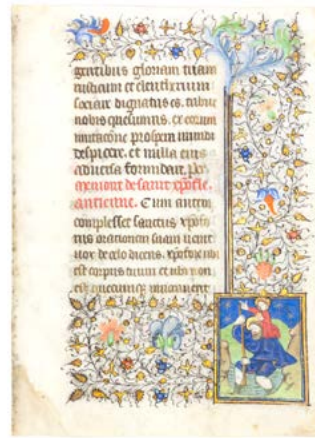 gentibus gloriam tuam
multitudinem et
sociare dignatus es. tribue
nobis quesumus. ex eorum
imitacõne prospera mundi
despicere. et nulla eius
adversa formidare. per
Memoire de saint xpõfle.
antienne. Cum autem
complesset sanctus xpõfo
rus orationem suam venit
vox de celo dicens. xpõfore ubi
est corpus tuum et ubi non
est